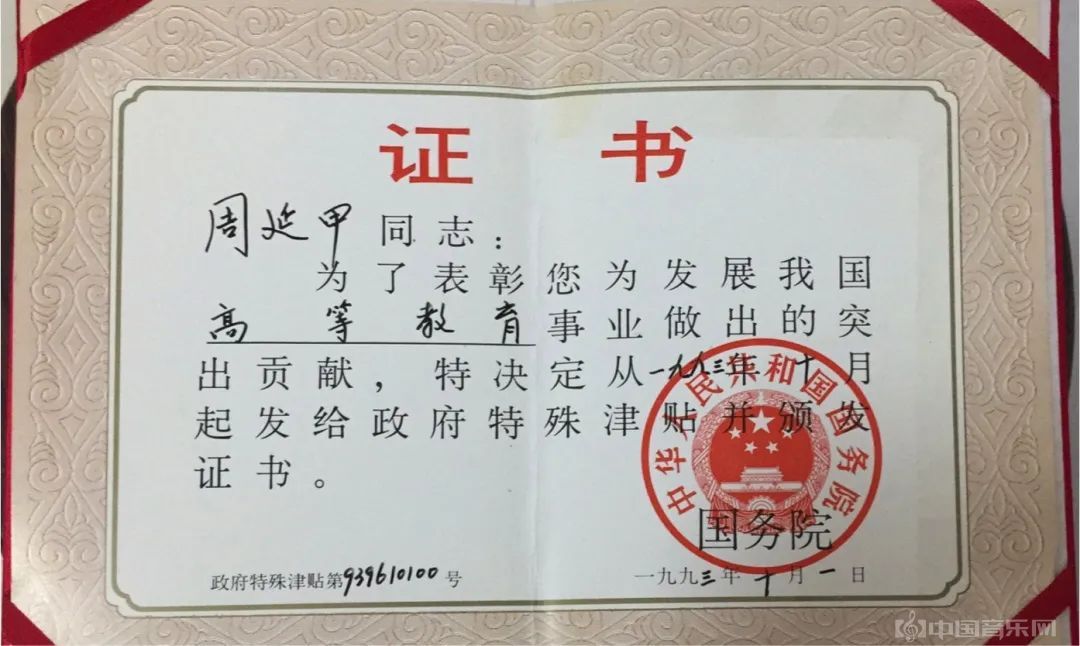 证书
周延甲同志：
为了表彰您为发展我国
高等教育事业做出的突
出贡献，特决定从一九九三年十月
起发给政府特殊津贴并颁发
证书。
中华人民共和国国务院
国务院
政府特殊津贴第939610100号
一九九三年十月一日
中国音乐网